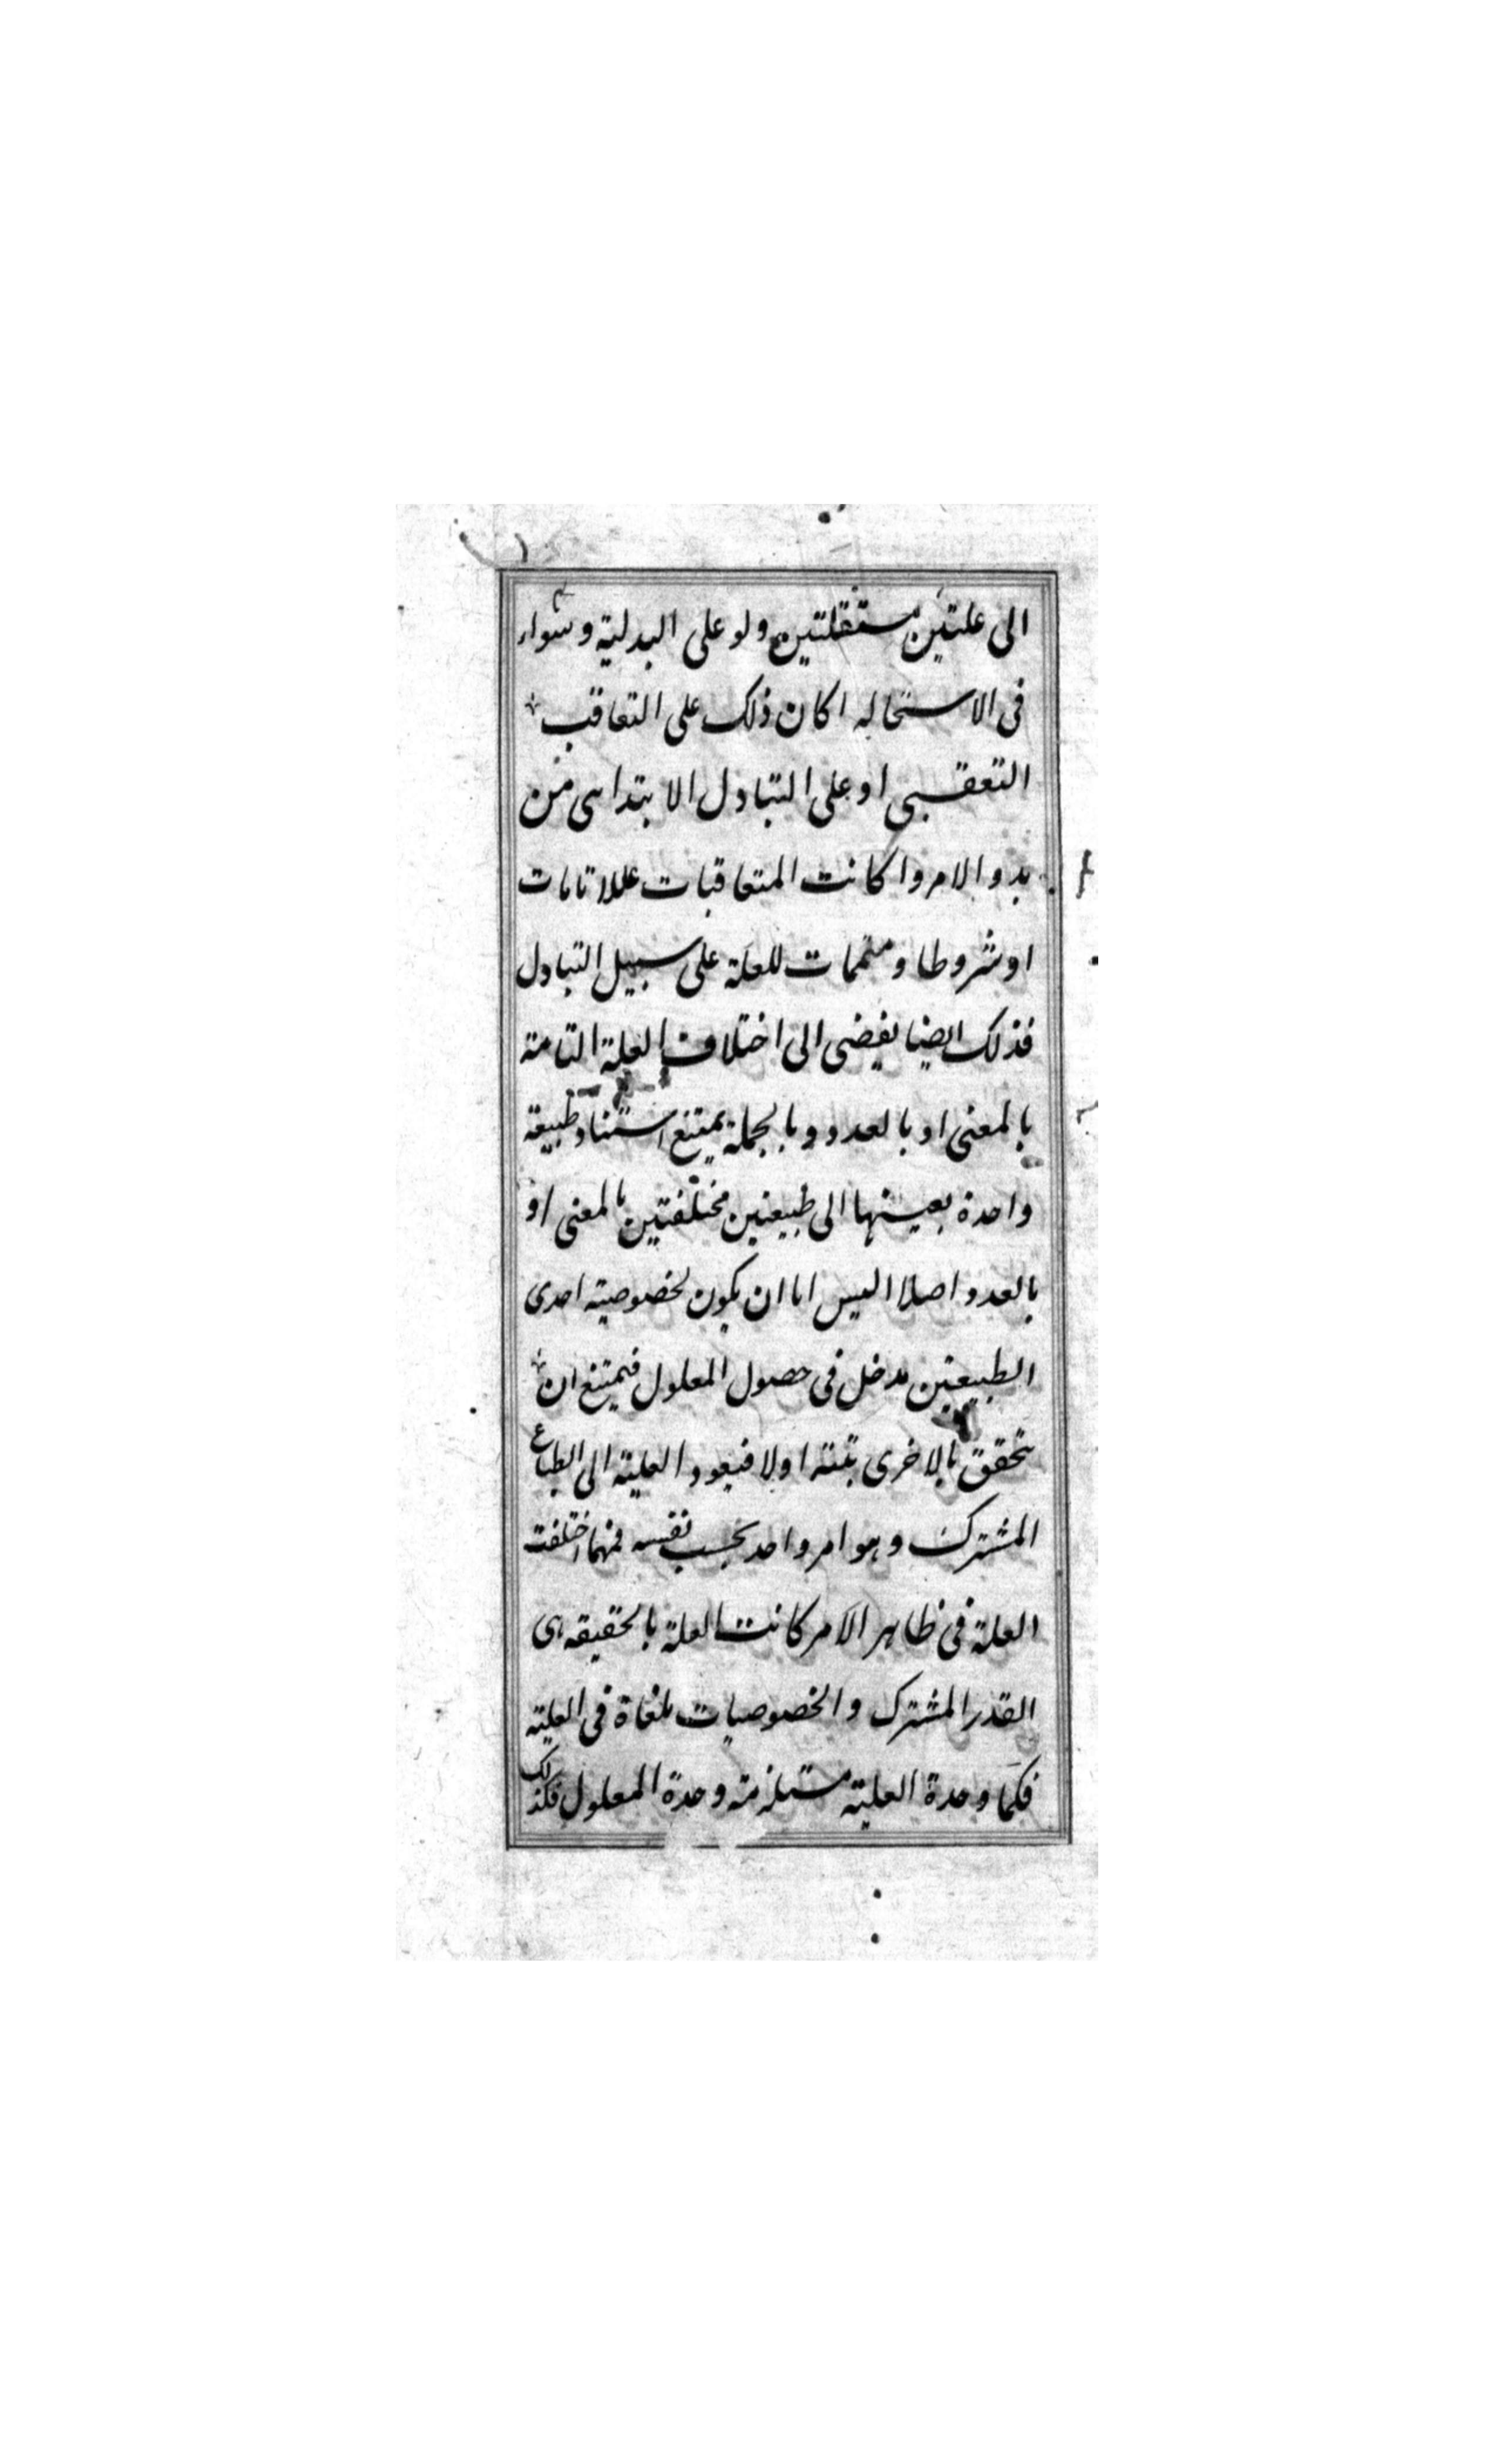 الى علتين مستقلتين ولو على البدلية وسواء
فى الاستحاله اكان ذلك على التعاقب
التعقبى او على التبادل الابتداى من
بدو الامر واكانت المتعاقبات عللا تامات
او شروطا ومتممات للعلة على سبيل التبادل
فذلك ايضا يفضى الى اختلاف العلة التامة
بالمعنى او بالعدد وبالجملة يمتنع استناد طبيعة
واحدة بعينها الى طبيعتين مختلفتين بالمعنى او
بالعدد اصلا اليس اما ان يكون لخصوصية احدى
الطبيعتين مدخل فى حصول المعلول فيمتنع ان
تتحقق بالاخرى بتة اولا فيعود العلية الى الطباع
المشترك وهو امر واحد بحسب نفسه فمهما اختلفت
العلة فى ظاهر الامر كانت العلة بالحقيقه هى
القدر المشترك والخصوصيات ملغاة فى العلية
فكما وحدة العلية مستلزمة وحدة المعلول فكذلك